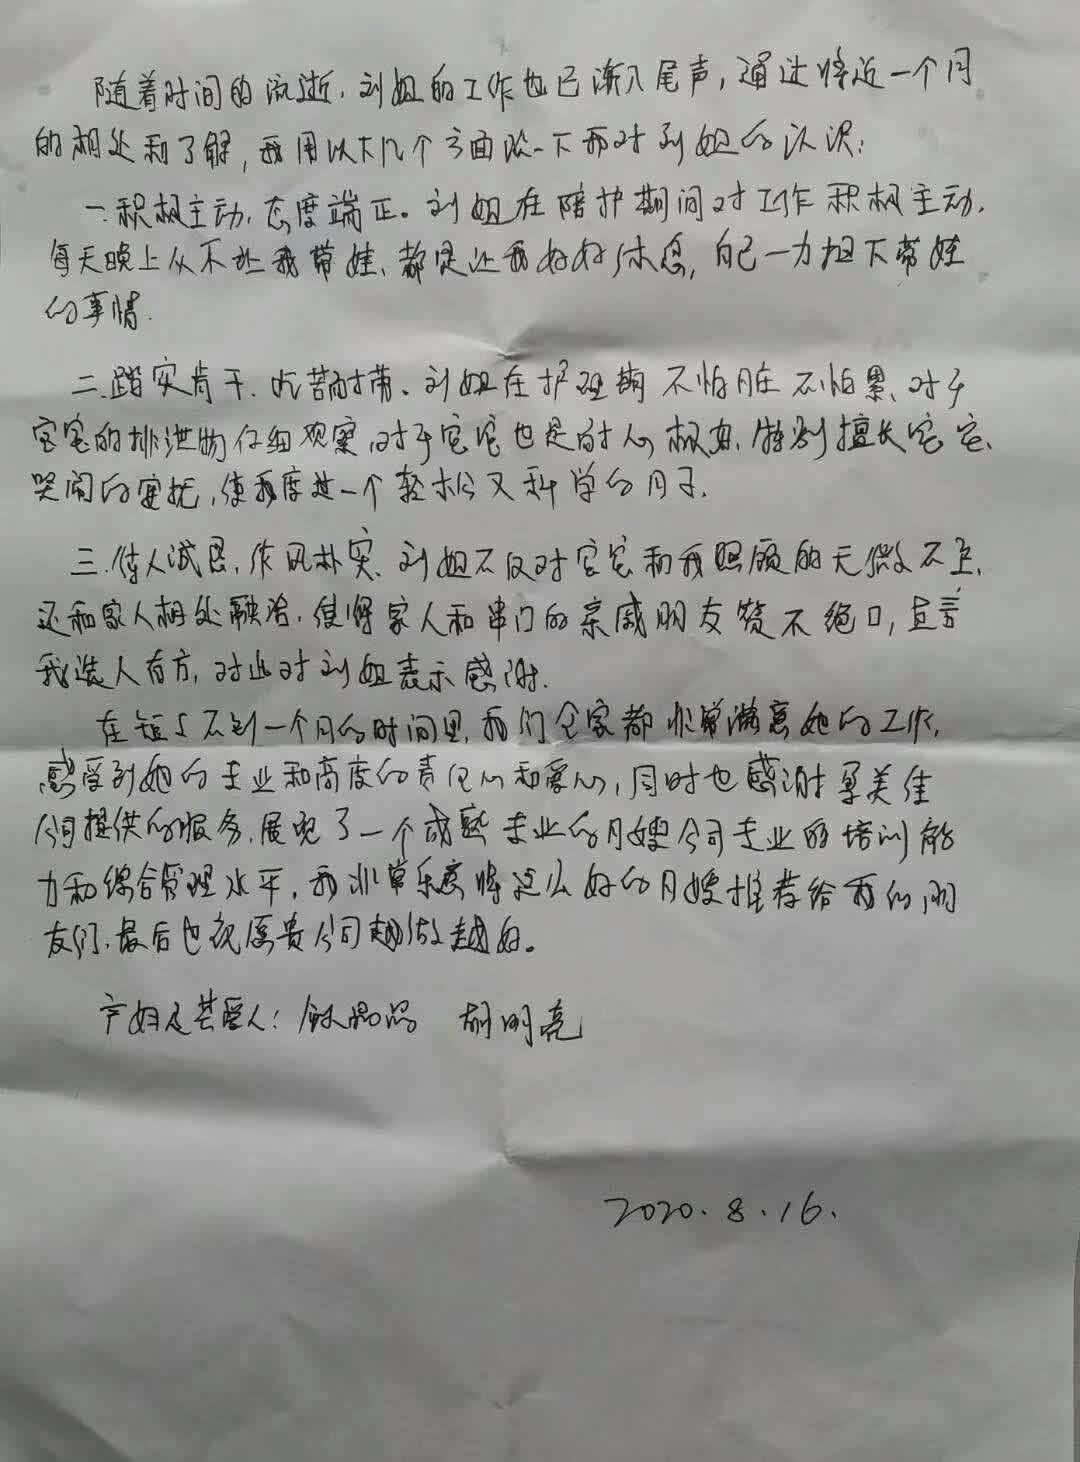 随着时间的流逝,刘姐的工作也已渐入尾声,通过将近一个月
的相处和了解,我用以下几个方面说一下我对刘姐的认识:
一.积极主动,态度端正。刘姐在陪护期间对工作积极主动,
每天晚上从不让我带娃、都是让我好好休息,自己一力担下带娃
的事情.
二.踏实肯干、吃苦耐劳。刘姐在护理期不怕脏不怕累、对于
宝宝的排泄物仔细观察,对于宝宝也是耐心极好,特别擅长宝宝、
哭闹的安抚,使我度过一个轻松又科学的月子.
三.待人诚恳,作风朴实、刘姐不仅对宝宝和我照顾的无微不至,
还和家人相处融洽,使得家人和串门的亲戚朋友赞不绝口,直言
我选人有方,对此对刘姐表示感谢.
在短短不到一个月的时间里,我们全家都非常满意她的工作,
感受到她的专业和高度的责任心和爱心,同时也感谢美佳
公司提供的服务,展现了一个成熟专业的月嫂公司专业的培训能
力和综合管理水平,我非常乐意将这么好的月嫂推荐给我的朋
友们,最后也祝愿贵公司越做越好。
产妇及其爱人: 胡明亮
2020.8.16.